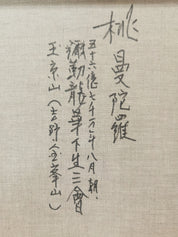 桃曼陀羅
五十六億七千万年八月朝、
彌勒龍華下生三會
玉京山(吉野金峯山)